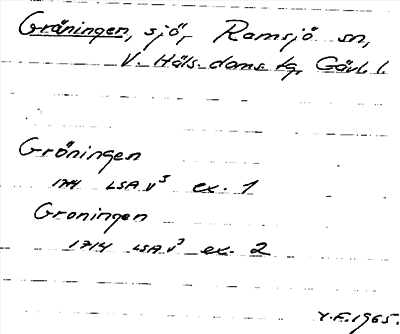 Gröningen, sjö, Ramsjö sn,
V. Häls. doms. tg, Gävl. l.
Gröningen
1714 LSA V³ ex. 1
Groningen
1714 LSA V³ ex. 2
Y.F. 1965.